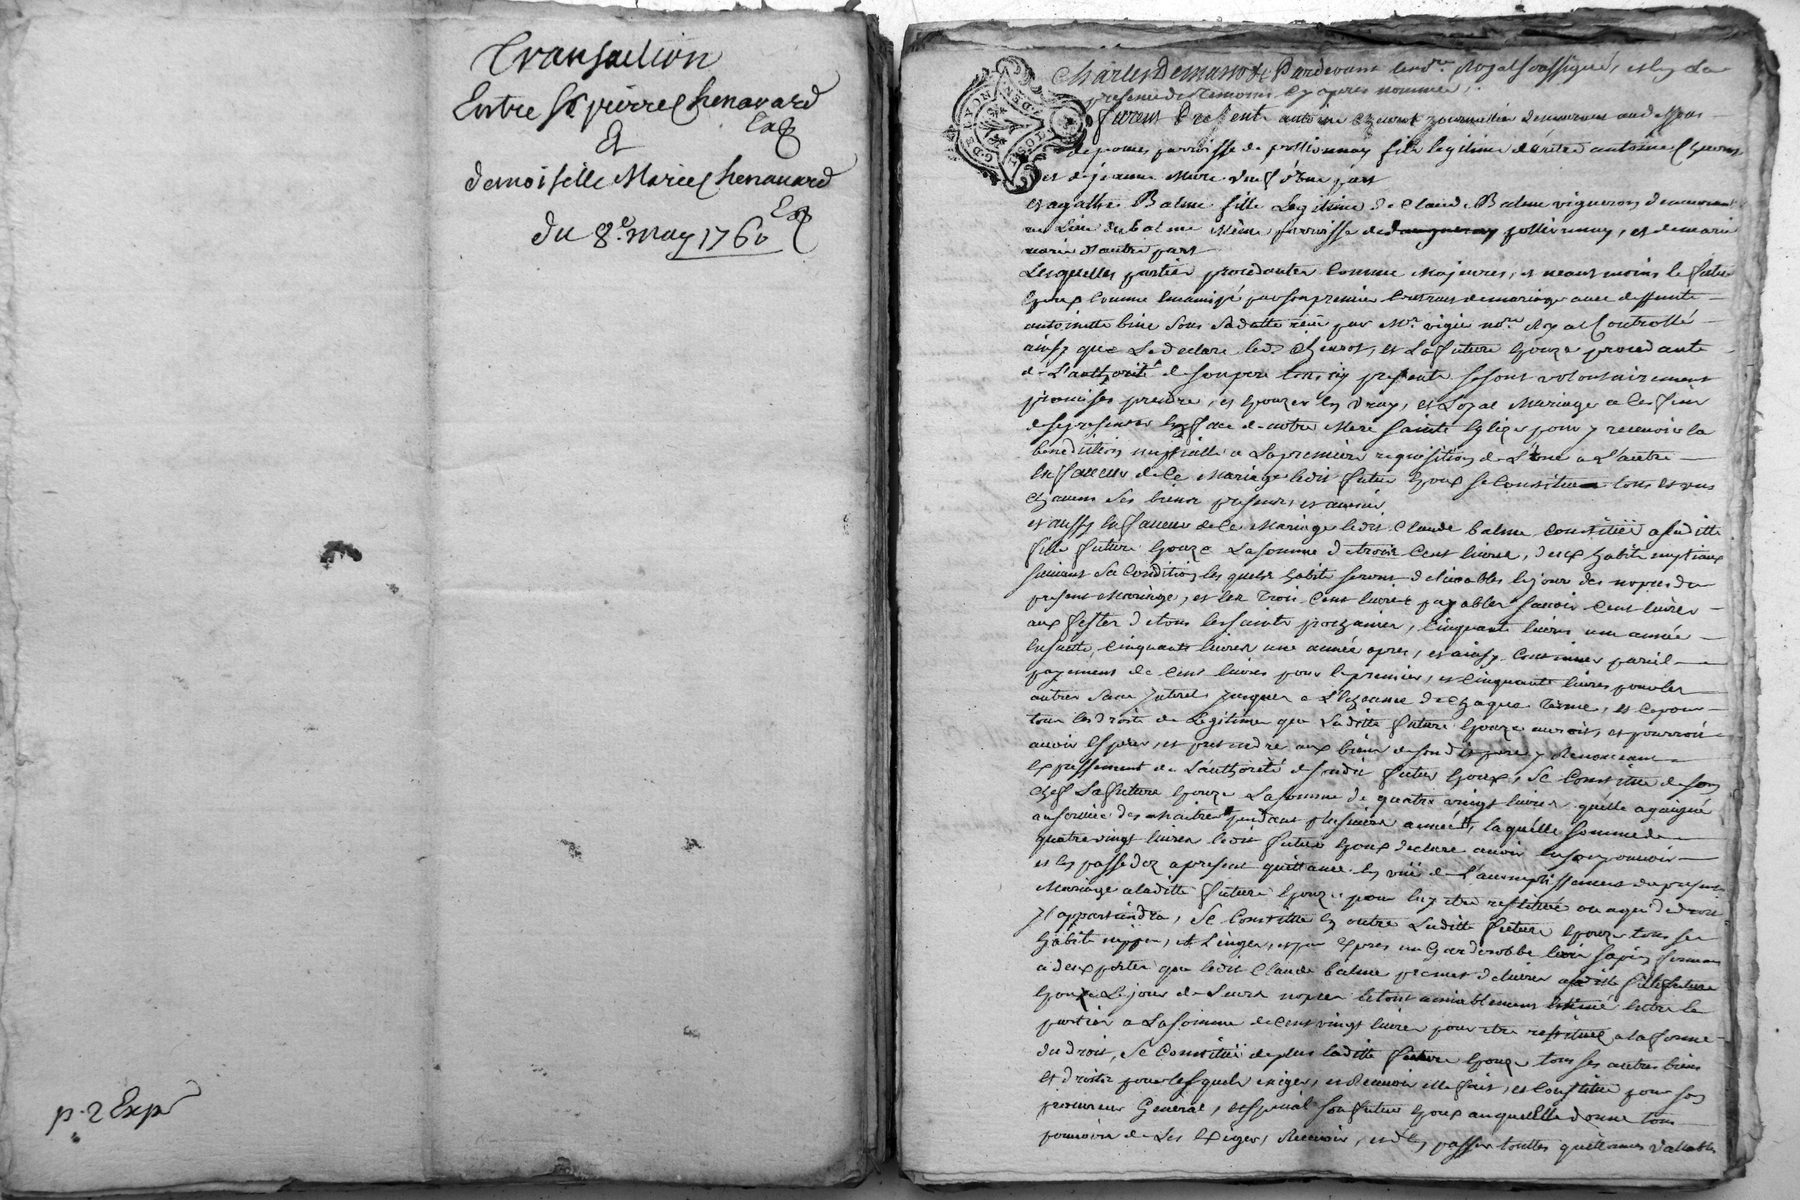 Transaction
Entre Sr pierre Chenavard
Et
demoiselle Marie Chenavard
du 8e. may 1760
p. 2 Expn
Pardevant le no.re Royal soussigné, et en la
presence des temoins cy apres nommés,
furent Presents antoine
de paroisse de pollionnay fils legitime antoine
et de jeanne d'une part
et agathe Balme fille Legitime de Claude Balme vigneron demeurant
au Lieu du balme même parroisse de pollionnay, et de marie
d'autre part
Lesquelles parties procedantes comme Majeures, et neantmoins le futur
Epoux comme emancipé par son premier Contract de mariage avec deffunte
antoinette sous sa datte par Mr. no.re Royal Controllé
ainsy que Le declare led. et La future Epouze procedante
de L'authorité de son pere presente se sont volontairement
promises prendre, et Epouzer en vray, et Loyal Mariage a ces fins
de se presenter en face de notre Mere Sainte Eglize pour y recevoir la
benediction nuptialle a La premiere requisition de L'une a L'autre
En faveur de Ce Mariage ledit futur Epoux se Constitue tous et uns
chacuns Ses biens presents, et avenir
et aussy En faveur de Ce Mariage ledit Claude balme Constitüe a saditte
fille future Epouze La somme de trois Cent livres, et habits nuptiaux
suivant Sa Condition les quels habits seront delivrables le jour des nopces du
present Mariage, et les trois Cent livres payables savoir Cent livres
aux festes de tous les saints prochaines, Cinquante livres une année
Ensuitte, Cinquante livres une année apres, et ainsy Continuer pareil
payement de Cent livres pour le premier, et Cinquante livres pour les
autres sans Interets jusques a L'Echeance de Chaque terme, et ce pour
tous les droits de Legitime que Laditte future Epouze auroit, et pourroit
avoir Esperer, et pretendre aux biens de sondit pere y Renonceant
Expressement de L'authorité de sondit futur Epoux, Se Constitue de son
chef La future Epouze La somme de quatre vingt livres qu'elle a gaigné
au service des Maitres pendant plusieurs années, laquelle somme de
quatre vingt livres ledit futur Epoux declare avoir En son pouvoir
et En passe dez a present quittance En vüe de L'accomplissement du present
Mariage a laditte future Epouze pour luy etre restitué ou a qui de droit
Il appartiendra, Se Constitue En outre Laditte future Epouze tous ses
habits nippes, et Linges, et par Expres un Garderobbe bois sapin fermant
a deux portes que ledit Claude balme promet delivrer a saditte fille future
Epouze Le jour de Leurs nopces le tout amiablement Estimé Entre les
parties a La somme de Cent vingt livres pour etre restitués a la forme
du droit, Se Constitüe de plus laditte future Epouze tous ses autres biens
et droits pour lesquels exiger, et recevoir elle fait, et Constitue pour son
procureur General, et special son futur Epoux auquel Elle donne tous
pouvoirs de Les Exiger, Recevoir, et d'En passer toutes quittances valables